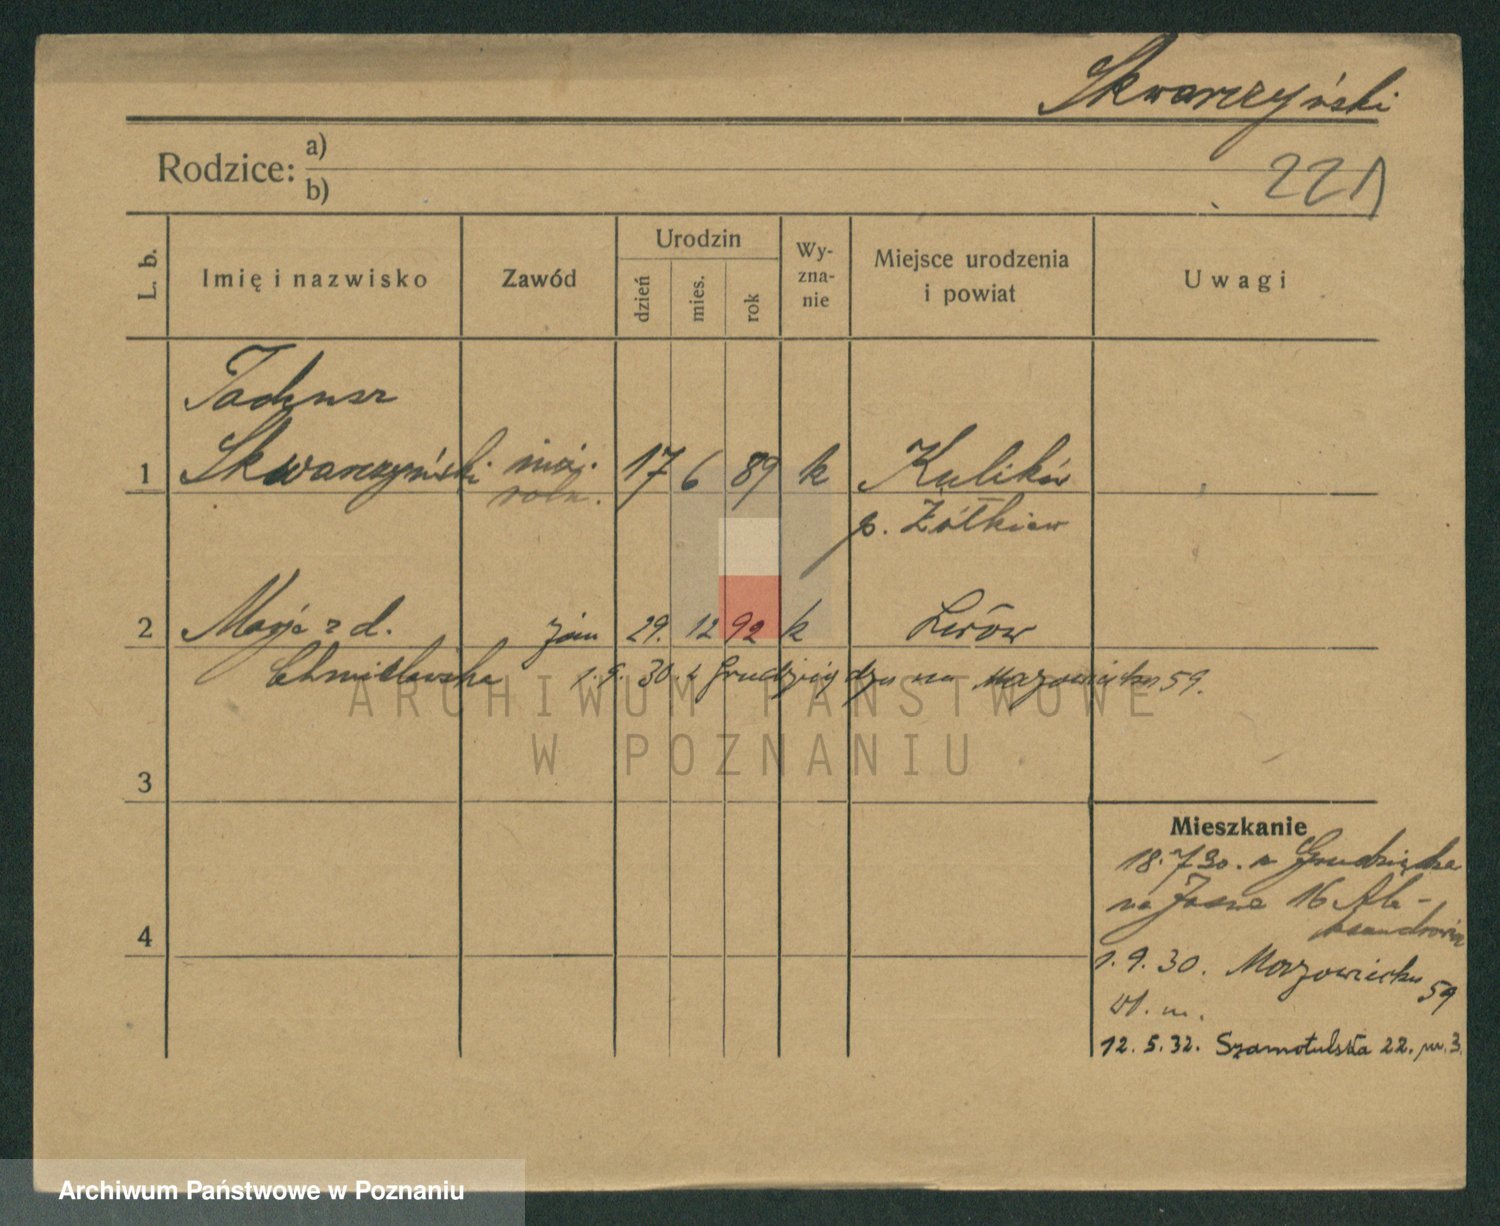 Skwarczyński
Rodzice: a)
b)
221
L. b.
Imię i nazwisko
Zawód
Urodzin
dzień
mies.
rok
Wy-
zna-
nie
Miejsce urodzenia
i powiat
Uwagi
Tadeusz
1 Skwarczyński inż. 17 6 89 k Kulików
roln. p. Żółkiew
2 Marja z d. żona 29. 12 92 k Lwów
Chmielewska 1.9.30. z Grudziądza na Mazowiecka 59.
3
4
Mieszkanie
18.7.30. z Grudziądza
na Jasna 16
1.9.30. Mazowiecka 59
m.
12.5.32. Szamotulska 22. m. 3
ARCHIWUM PAŃSTWOWE
W POZNANIU
Archiwum Państwowe w Poznaniu